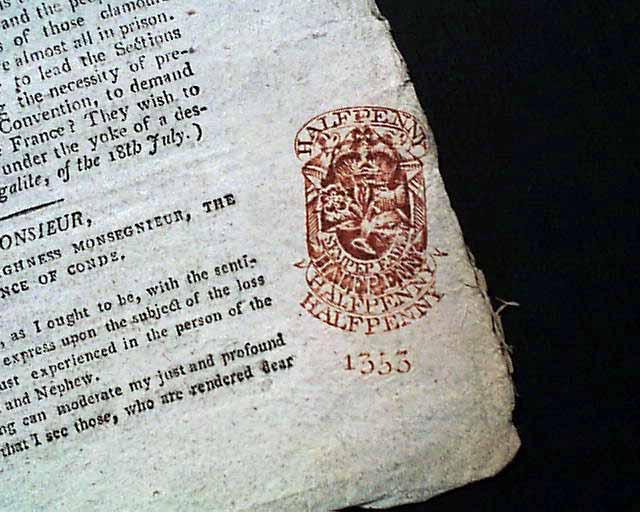 and the pe
s of those clamou
e almost all in prison.
to lead the Sections
the necessity of pre-
Convention, to demand
France? They wish to
under the yoke of a des-
galité, of the 18th July.)
ONSIEUR,
IGHNESS MONSEGNIEUR, THE
NCE OF CONDE.
, as I ought to be, with the senti-
express upon the subject of the loss
ust experienced in the person of the
and Nephew.
ng can moderate my just and profound
that I see those, who are rendered dear
HALFPENNY
SEMPER EADEM
HALFPENNY
HALFPENNY
HALFPENNY
1353